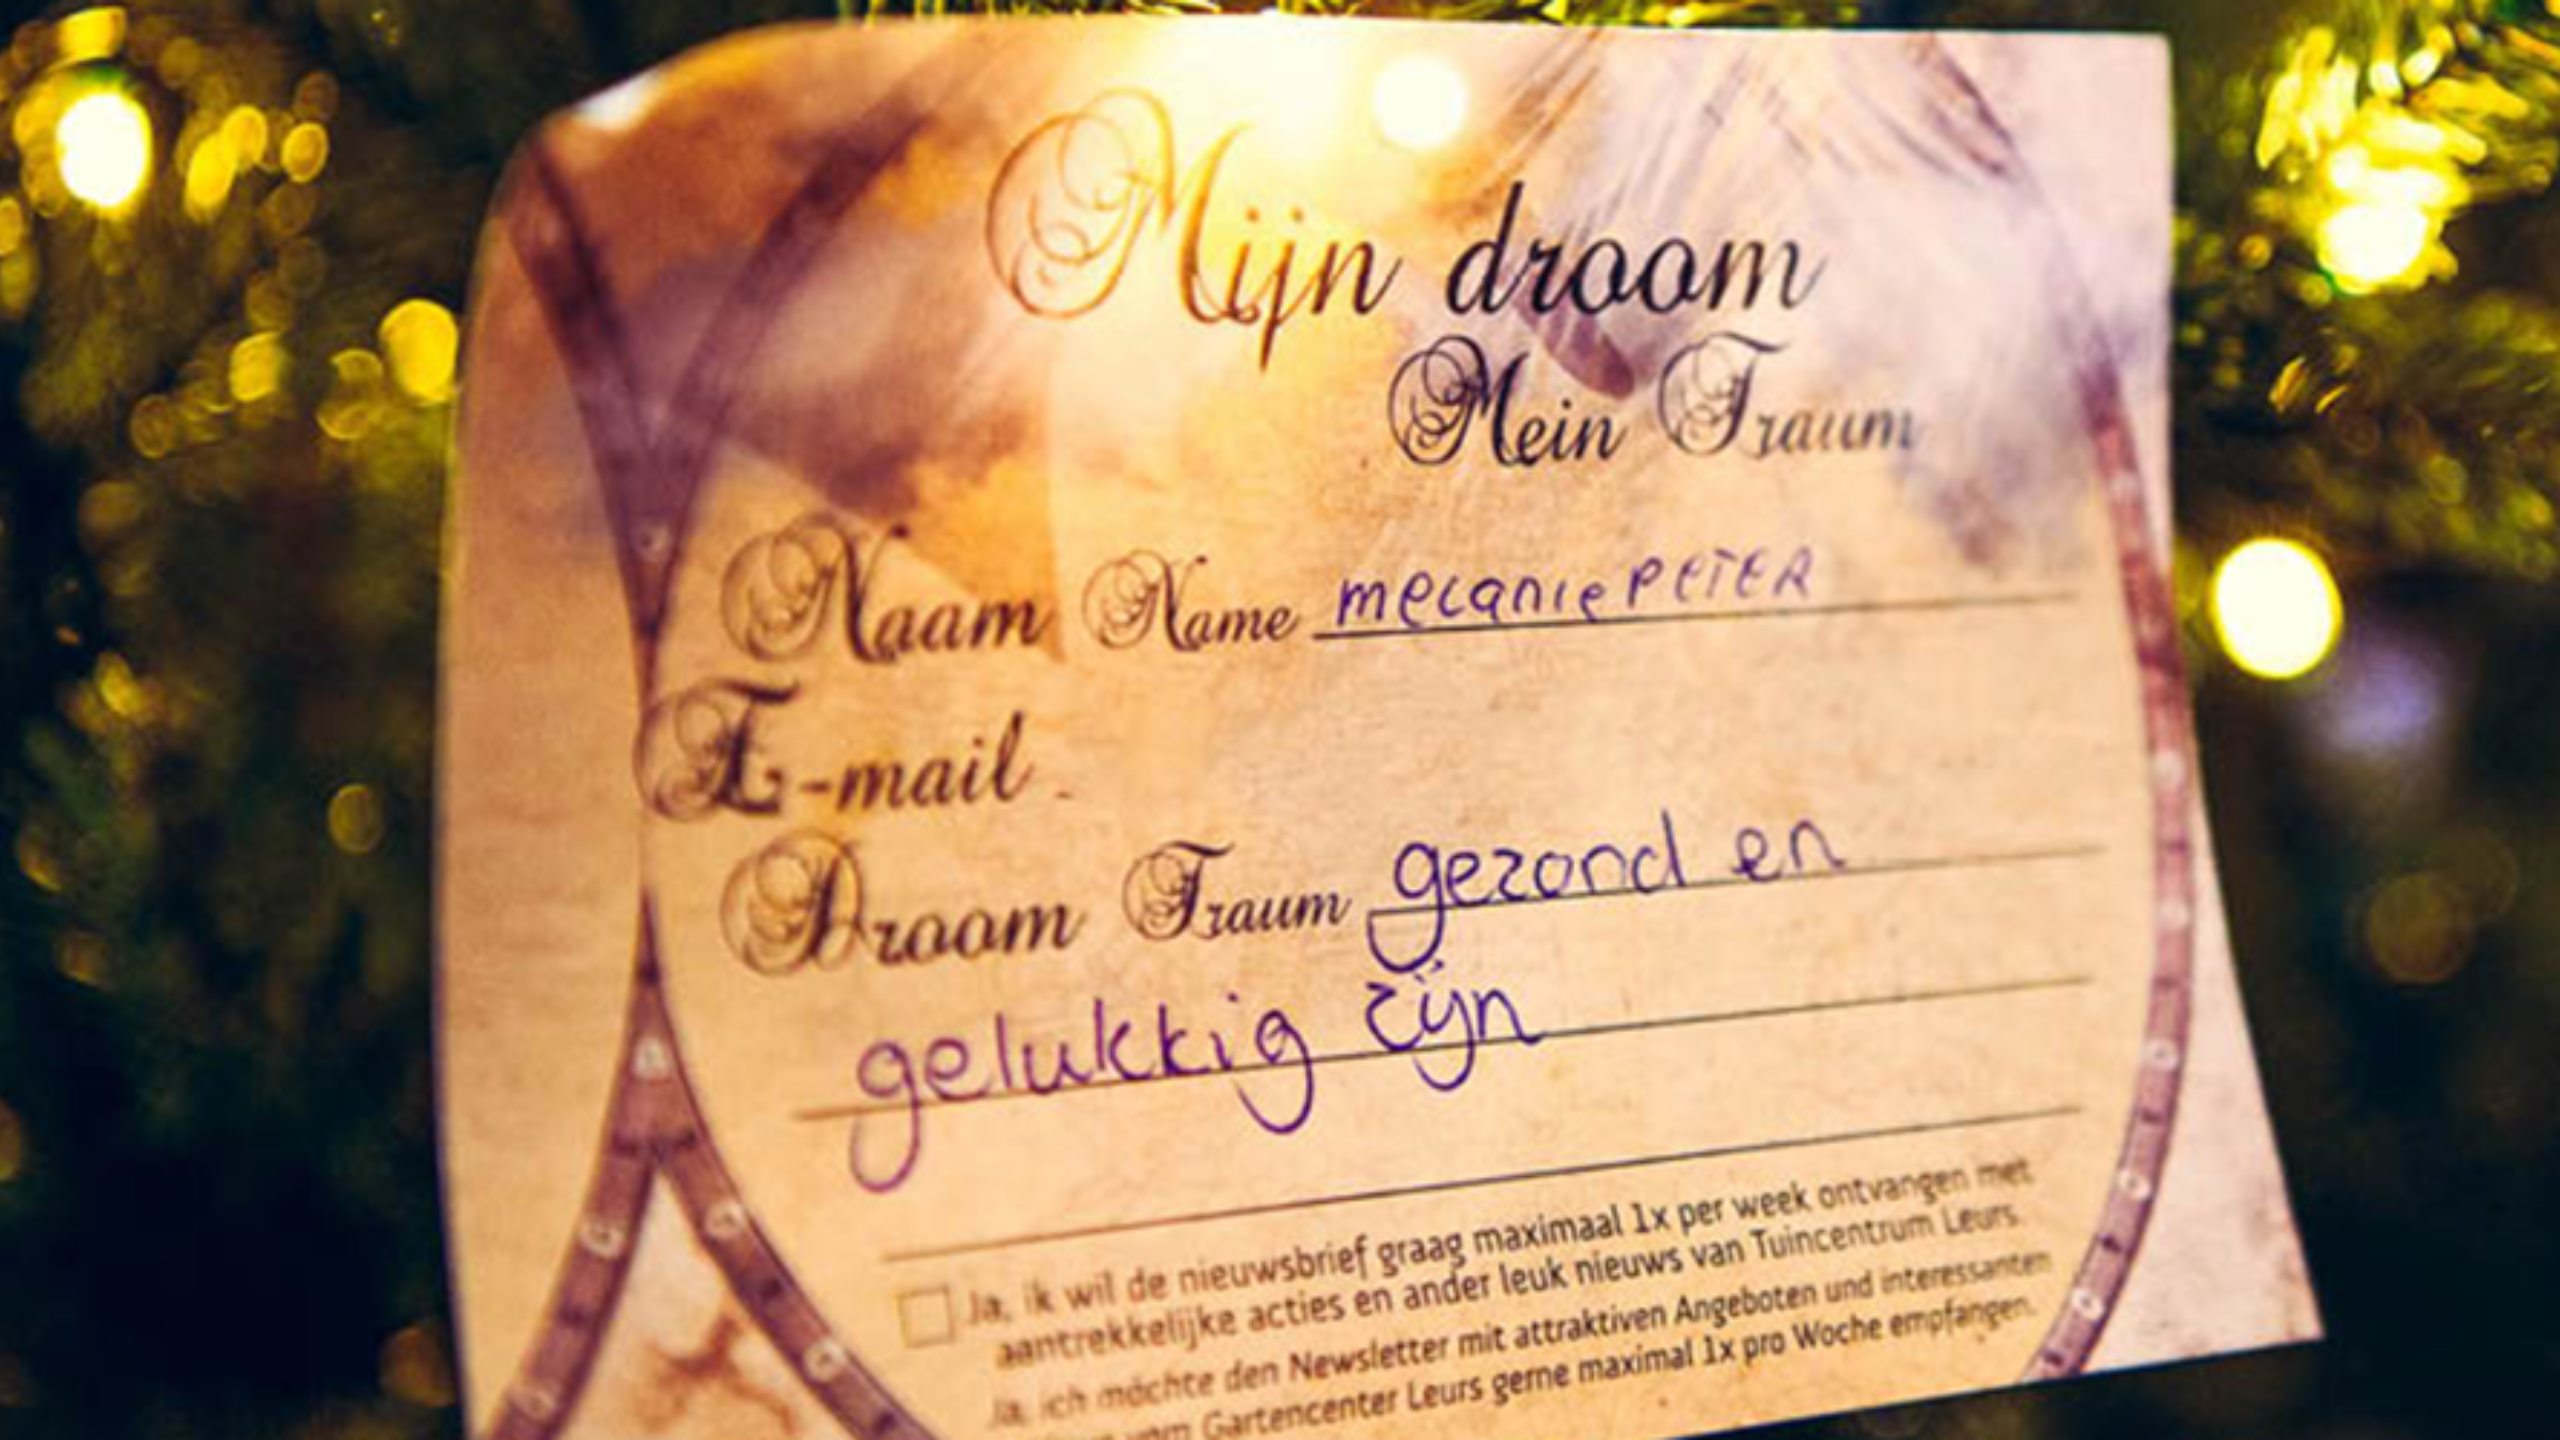 Mijn droom
Mein Traum
Naam Name melanie PETER
E-mail
Droom Traum gezond en
gelukkig zijn
Ja, ik wil de nieuwsbrief graag maximaal 1x per week ontvangen met
aantrekkelijke acties en ander leuk nieuws van Tuincentrum Leurs.
Ja, ich möchte den Newsletter mit attraktiven Angeboten und interessanten
vom Gartencenter Leurs gerne maximal 1x pro Woche empfangen.